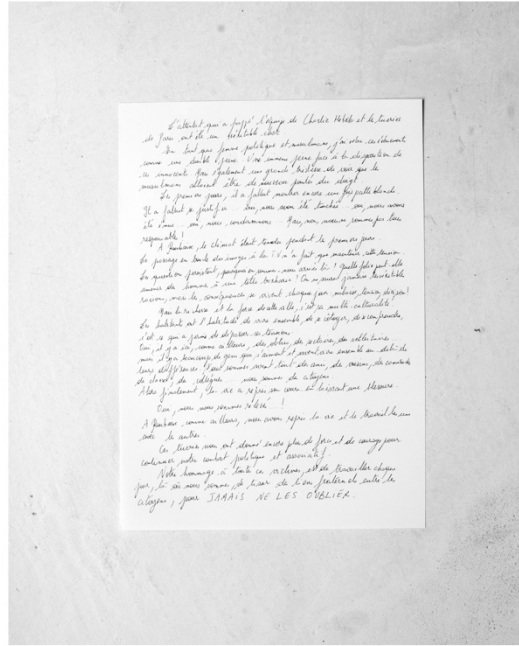 L'attentat qui a frappé l'équipe de Charlie Hebdo et la tuerie
de Paris ont été un véritable choc.
En tant que femme politique et musulmane, j'ai vécu ces événements
comme une double peine. Une immense peine face à la disparition de
ces innocents. Mais également une grande tristesse de voir que les
musulmans allaient être de nouveau pointés du doigt.
Les premiers jours, il a fallu montrer encore une fois patte blanche.
Il a fallu se justifier. Oui, nous avons été touchés. oui, nous avons
été émus. oui, nous condamnons. Mais, non, nous ne sommes pas tous
responsables !
A Roubaix, le climat était tendu pendant les premiers jours.
Le passage en boucle des images à la TV n'a fait que accentuer cette tension.
La question persistait, pourquoi en sommes-nous arrivés là ? Quelle folie peut-elle
amener des hommes à une telle barbarie ? On ne saura jamais les véritables
raisons, mais les conséquences se vivent chaque jour
Mais la richesse et la force de cette ville, c'est sa multi-culturalité.
Les habitants ont l'habitude de vivre ensemble, de se côtoyer, de se comprendre,
c'est ce qui a permis de dépasser ces tensions.
Oui, il y a ici, comme ailleurs, des
mais il y a beaucoup de gens qui s'aiment et vivent ensemble au-delà de
leurs différences. Nous sommes avant tout des amis, des voisins, des camarades
de classe, des collègues... nous sommes des citoyens.
Alors finalement, la vie a repris son cours en laissant une blessure.
Oui, nous nous sommes relevés !
A Roubaix, comme ailleurs, nous avons repris la vie et le travail les uns
avec les autres.
Ces tueries nous ont donné encore plus de force et de courage pour
continuer notre combat politique et associatif.
Notre hommage à toutes ces victimes, est de travailler chaque
jour, là où nous sommes, de tisser des liens fraternels entre les
citoyens, pour JAMAIS NE LES OUBLIER.